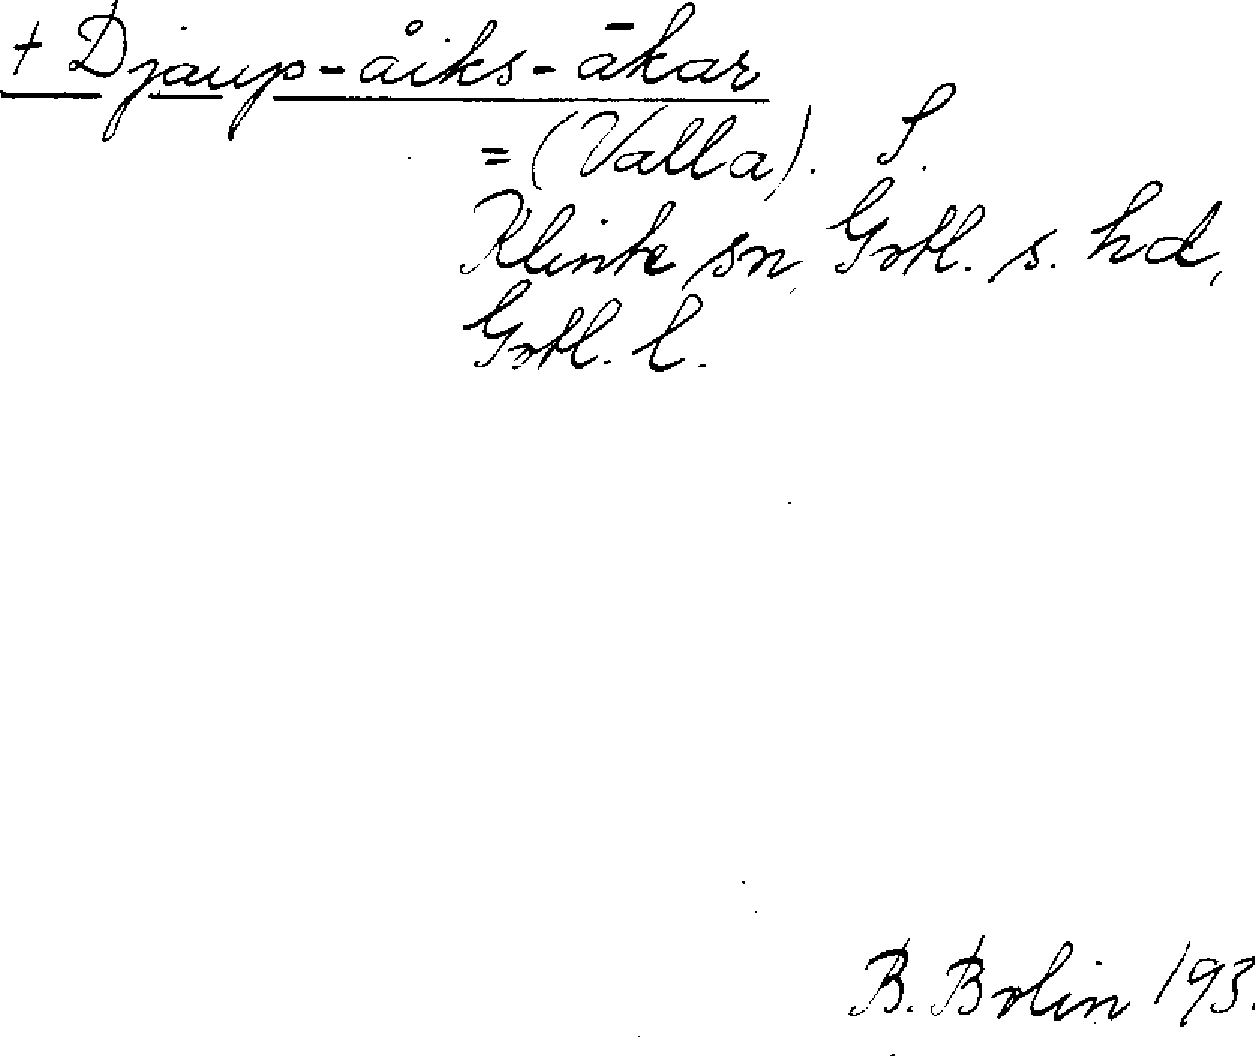 + Djaup-åiks-ākar
= (Valla). S.
Klinte sn, Gotl. s. hd,
Gotl. l.
B. Bolin 193.